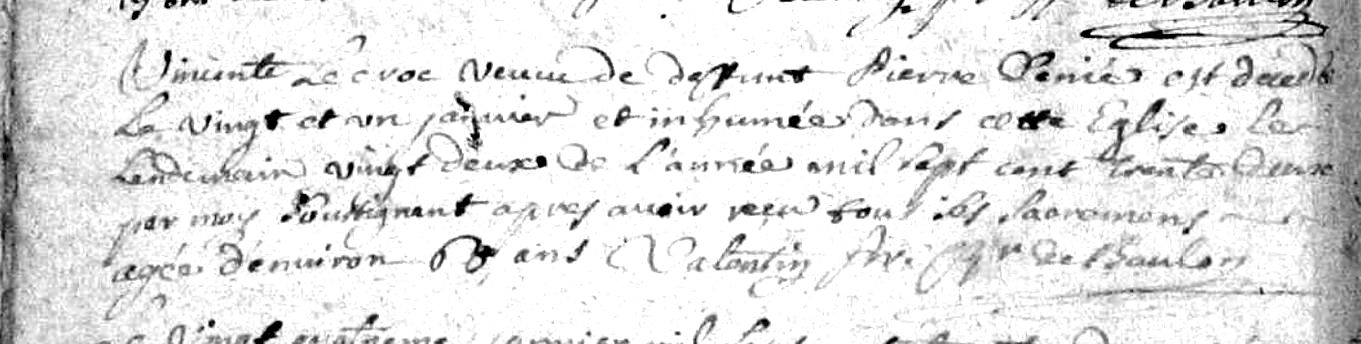 Vincente Le croc veuve de deffunt Pierre est decedée
Le vingt et un janvier et inhumée dans cette Eglise Le
lendemain vingt deux de L'année mil sept cent trente deux
par moy soussignant apres avoir reçu tous les sacremens
agée d'environ 68 ans Valentin
Vingt janvier mil